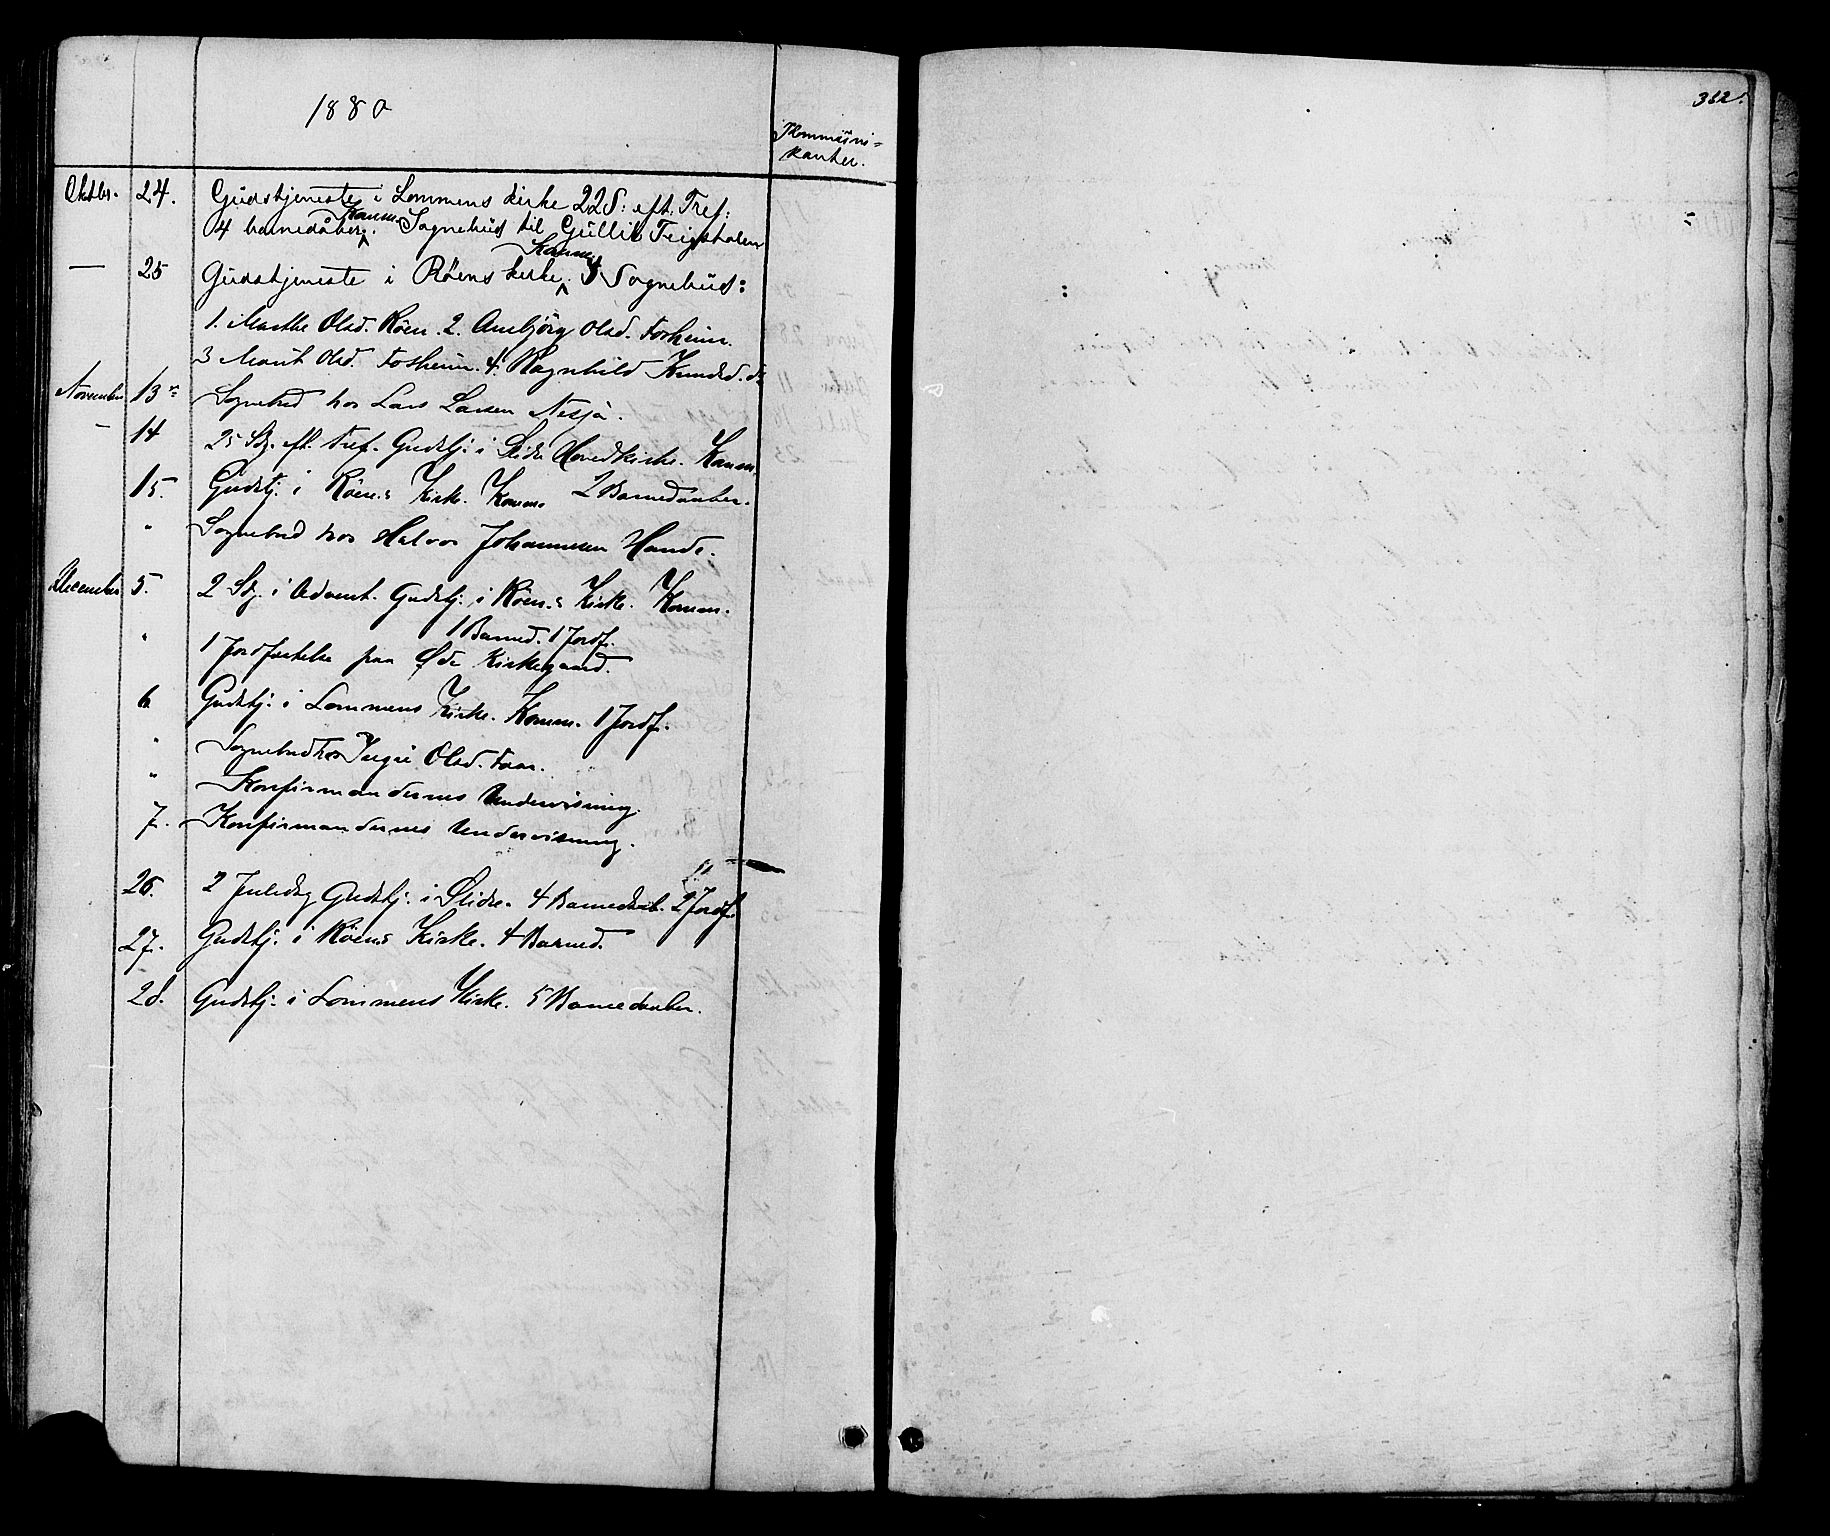 1880
Kommuni=
kanter.
Oktbr. 24. Gudstjeneste i Lommens kirke 22 S: eft. Tref:
4 barnedåber. Komm. Sognebud til Gullik
— 25 Gudstjeneste i Röens kirke. Komm. 4 Sognebud:
1. Marthe Olsd. Röen. 2. Ambjörg Olsd. Fosheim.
3 Marit Olsd. Fosheim. 4. Ragnhild Knudsd. do
November 13 Sognebud hos Lars Larsen Nesja.
— 14 25 Sdg. eft. Tref. Gudstj. i Slidre Hovedkirke. Komm.
15. Gudstj. i Röens Kirke. Komm. 2 Barnedaaber.
" Sognebud hos Halvor Johannesen Hande.
December 5. 2 Sdg. i Advent. Gudstj. i Röens Kirke. Komm.
1 Barned. 1 Jordf.
" 1 Jordfæstelse paa Øde Kirkegaard.
6. Gudstj. i Lommens Kirke. Komm. 1 Jordf.
" Sognebud hos Olsd.
" Konfirmandernes Undervisning.
7. Konfirmandernes Undervisning.
26. 2 Juledag Gudstj. i Slidre. 4 Barnedaab. 2 Jordf.
27. Gudstj. i Röens Kirke. 4 Barned.
28. Gudstj. i Lommens Kirke. 5 Barnedaaber.